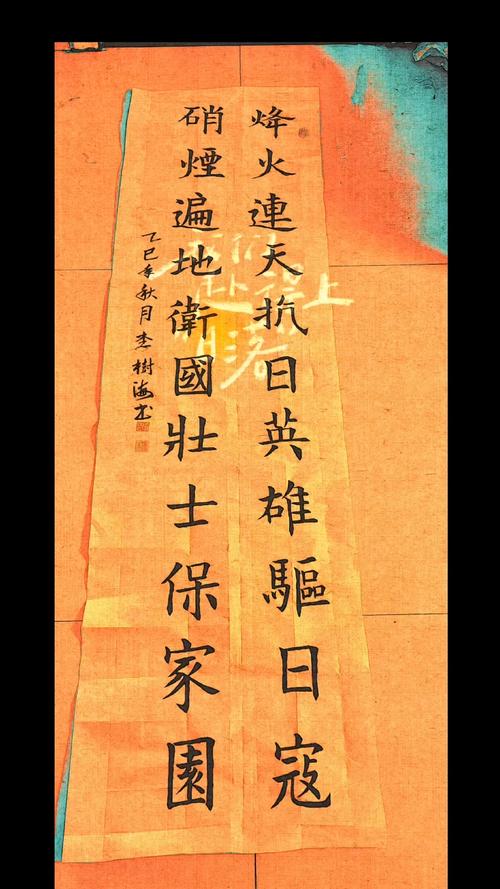 烽火連天抗日英雄驅日寇
硝煙遍地衛國壯士保家園
乙巳年秋月李樹海书